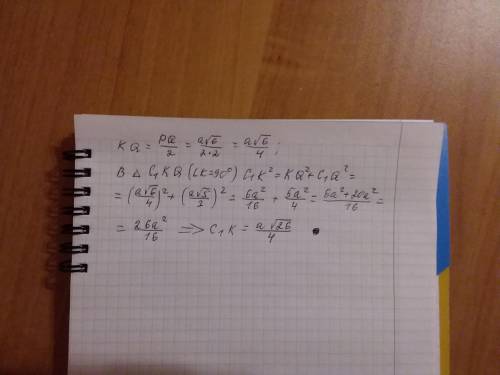 KQ = PQ/2 = a√6/2·2 = a√6/4;
В △ C₁KQ (∠K=90°) C₁K² = KQ² + C₁Q² =
= (a√6/4)² + (a√5/2)² = 6a²/16 + 5a²/4 = 6a²+20a²/16 =
= 26a²/16 ⇒ C₁K = a√26/4